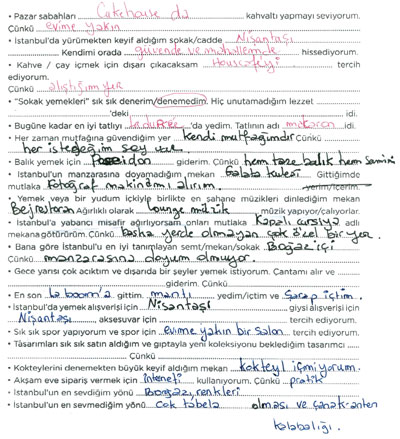 • Pazar sabahları Cakehouse da kahvaltı yapmayı seviyorum.
Çünkü evime yakın
• İstanbul'da yürümekten keyif aldığım sokak/cadde Nişantaşı
Kendimi orada güvende ve mahallemde hissediyorum.
• Kahve / çay içmek için dışarı çıkacaksam Housecafe'yi tercih
ediyorum.
Çünkü alıştığım yer
• "Sokak yemekleri" sık sık denerim/denemedim. Hiç unutamadığım lezzet
'deki idi.
• Bugüne kadar en iyi tatlıyı Laduree 'da yedim. Tatlının adı makaron idi.
• Her zaman mutfağına güvendiğim yer kendi mutfağımdır Çünkü
her istediğim şey var.
• Balık yemek için Poseidon giderim. Çünkü hem taze balık hem samimi
• İstanbul'un manzarasına doyamadığım mekan Galata kulesi Gittiğimde
mutlaka fotoğraf makinamı alırım. yerim/içerim.
• Yemek veya bir yudum içkiyle birlikte en şahane müzikleri dinlediğim mekan
Bej restoran Ağırlıklı olarak Lounge müzik müzik yapıyor/çalıyorlar.
• İstanbul'a yabancı misafir ağırlıyorsam onları mutlaka Kapalı çarşıya adlı
mekana götürürüm. Çünkü başka yerde olmayan çok özel bir yer.
• Bana göre İstanbul'u en iyi tanımlayan semt/mekan/sokak Boğaz içi
Çünkü manzarasına doyum olmuyor.
• Gece yarısı çok acıktım ve dışarıda bir şeyler yemek istiyorum. Çantamı alır ve
giderim. Çünkü
• En son Laboom'a gittim. mantı yedim/içtim ve şarap içtim.
• İstanbul'da yemek alışverişi için Nişantaşı giysi alışverişi için
Nişantaşı aksesuvar için tercih ediyorum.
• Sık sık spor yapıyorum ve spor için evime yakın bir salon tercih ediyorum.
• Tasarımları sık sık satın aldığım ve gıptayla yeni koleksiyonu beklediğim tasarımcı
Çünkü
• Kokteylerini denemekten büyük keyif aldığım mekan kokteyl içmiyorum.
• Akşam eve sipariş vermek için interneti kullanıyorum. Çünkü pratik
• İstanbul'un en sevdiğim yönü Boğaz, renkleri
• İstanbul'un en sevmediğim yönü çok tabela olması ve çanak-anten
kalabalığı.